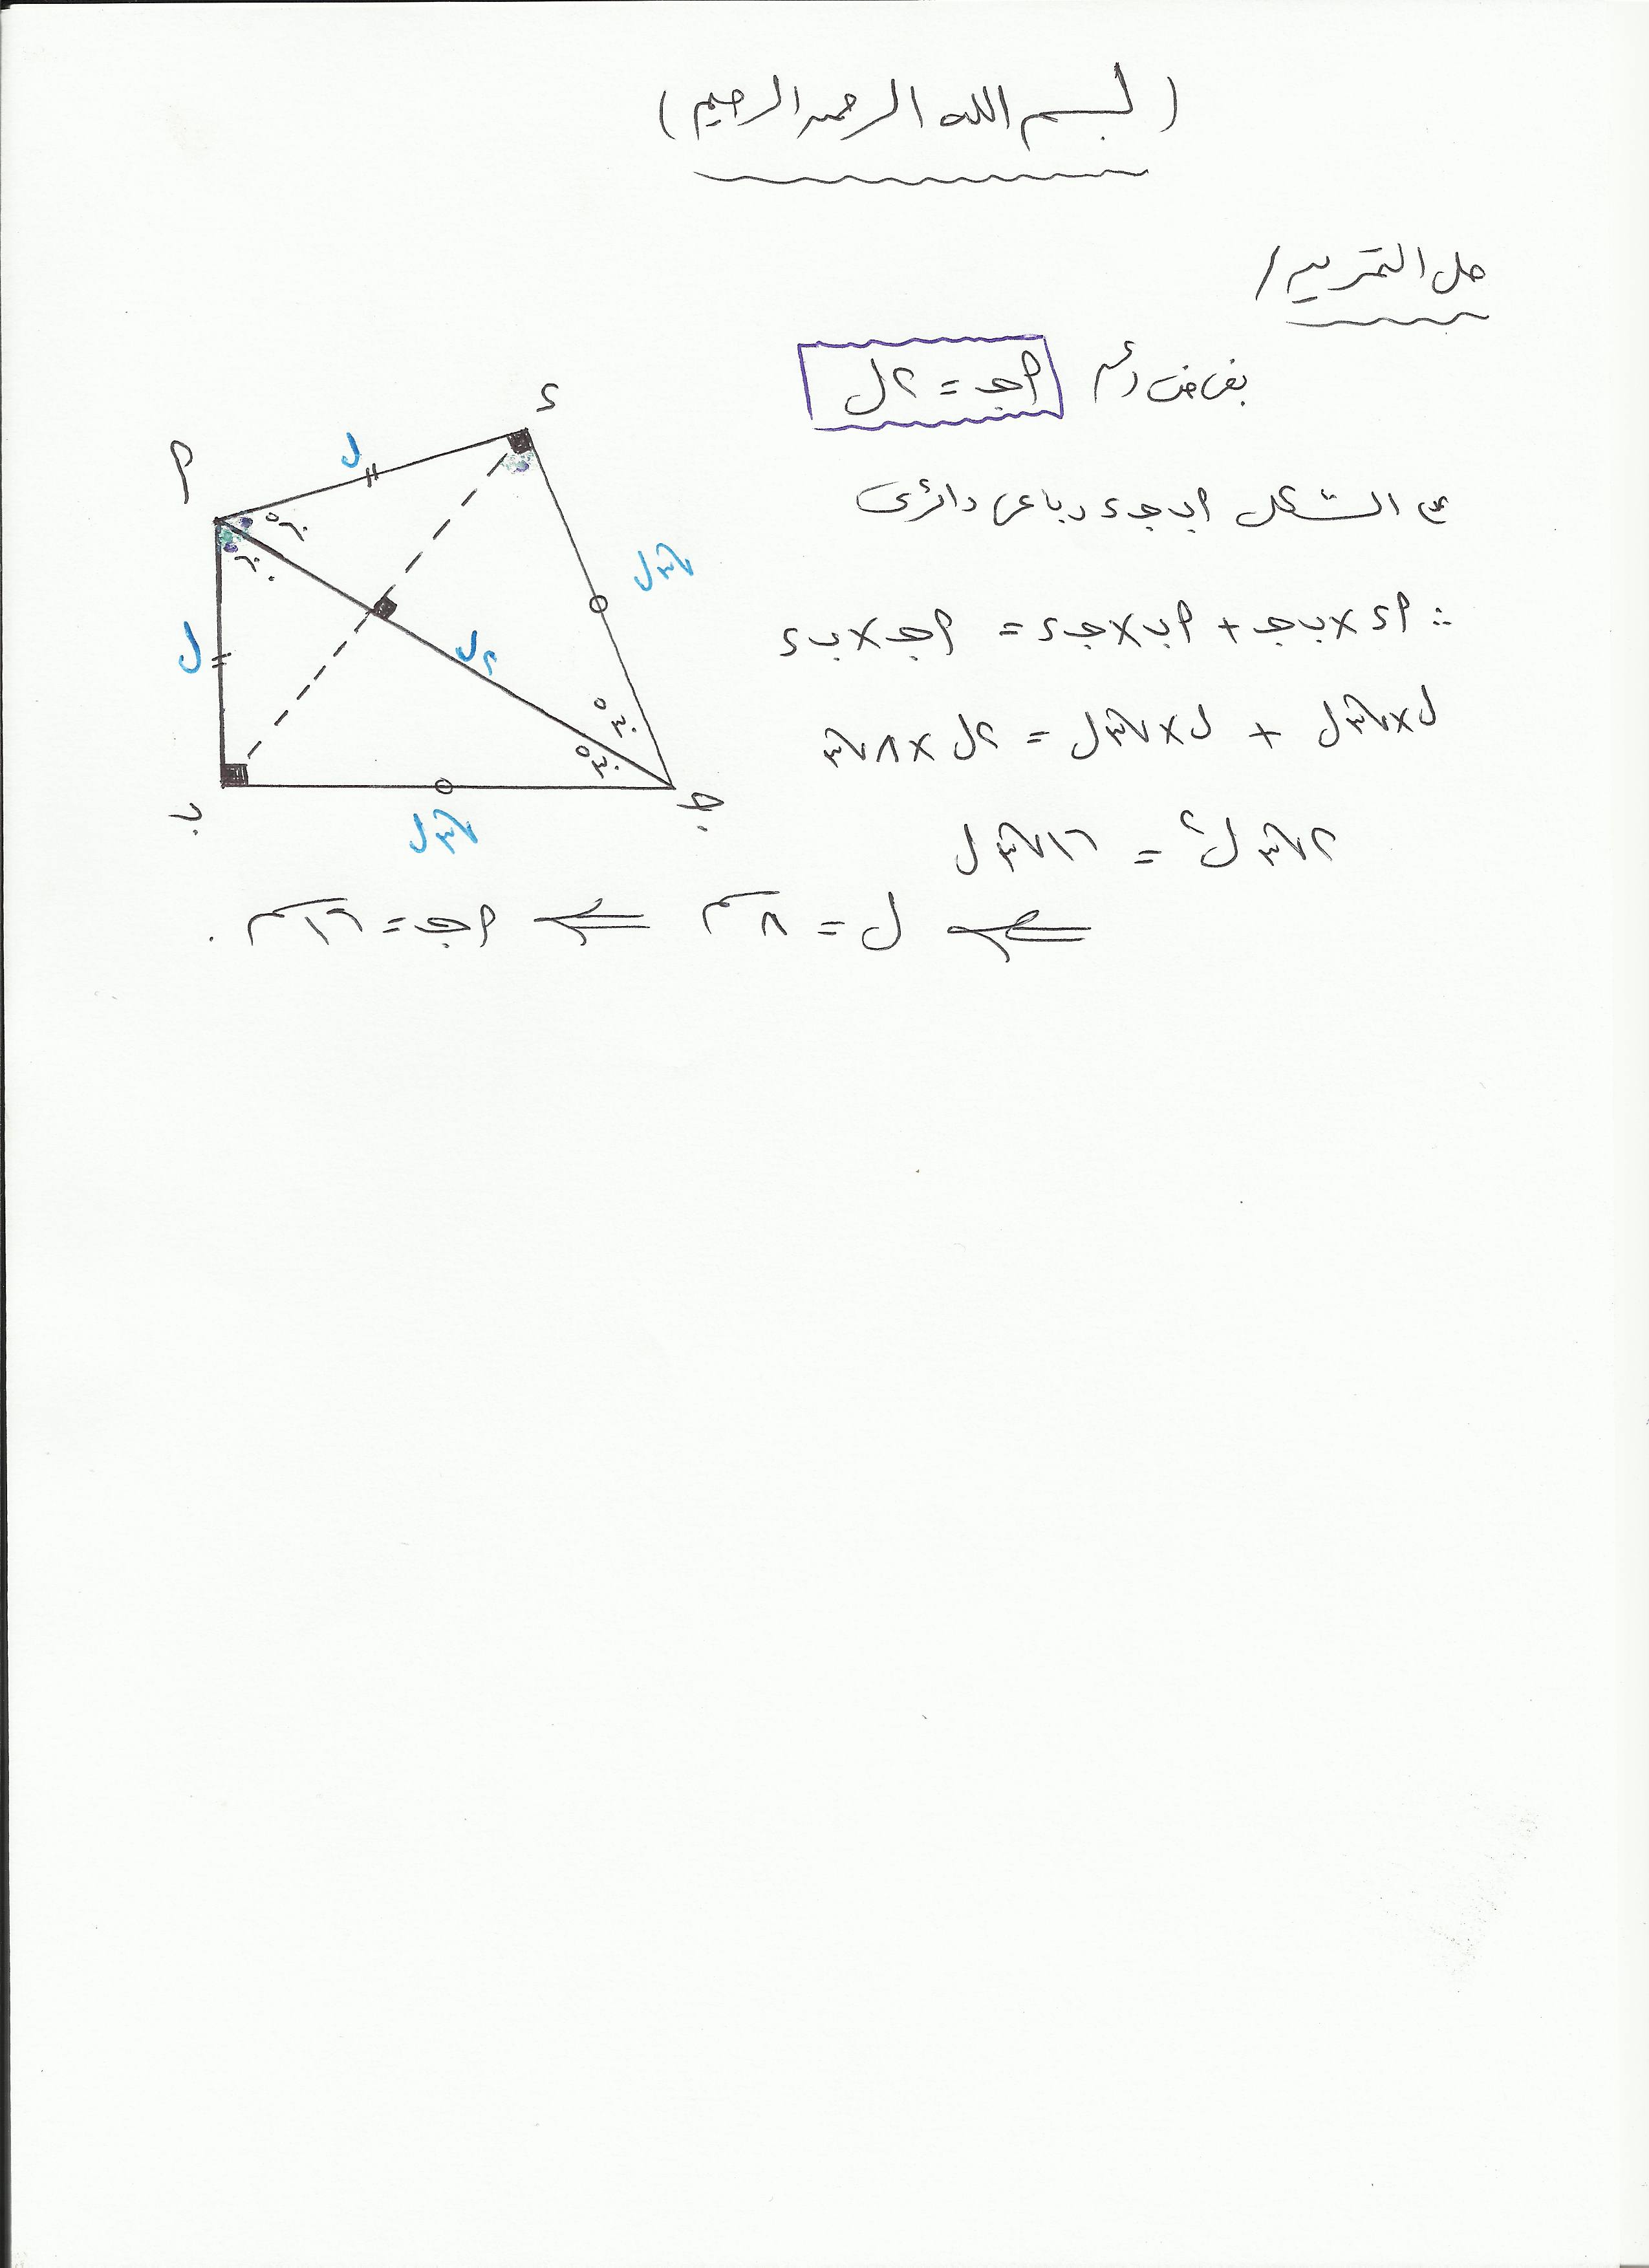 (بسم الله الرحمن الرحيم)
حل التمرين /
بفرض أن أجـ = ٢ل
∵ الشكل أب جـ د رباعى دائرى
∴ أد × ب جـ + أب × جـ د = أجـ × ب د
ل × √٣ ل + ل × √٣ ل = ٢ل × ٨√٣
٢√٣ ل² = ١٦√٣ ل
⇐ ل = ٨ سم ⇐ أجـ = ١٦ سم .
د
أ
ل
٦٠°
٦٠°
√٣ ل
ل
٢ل
٣٠°
٣٠°
ب
جـ
√٣ ل